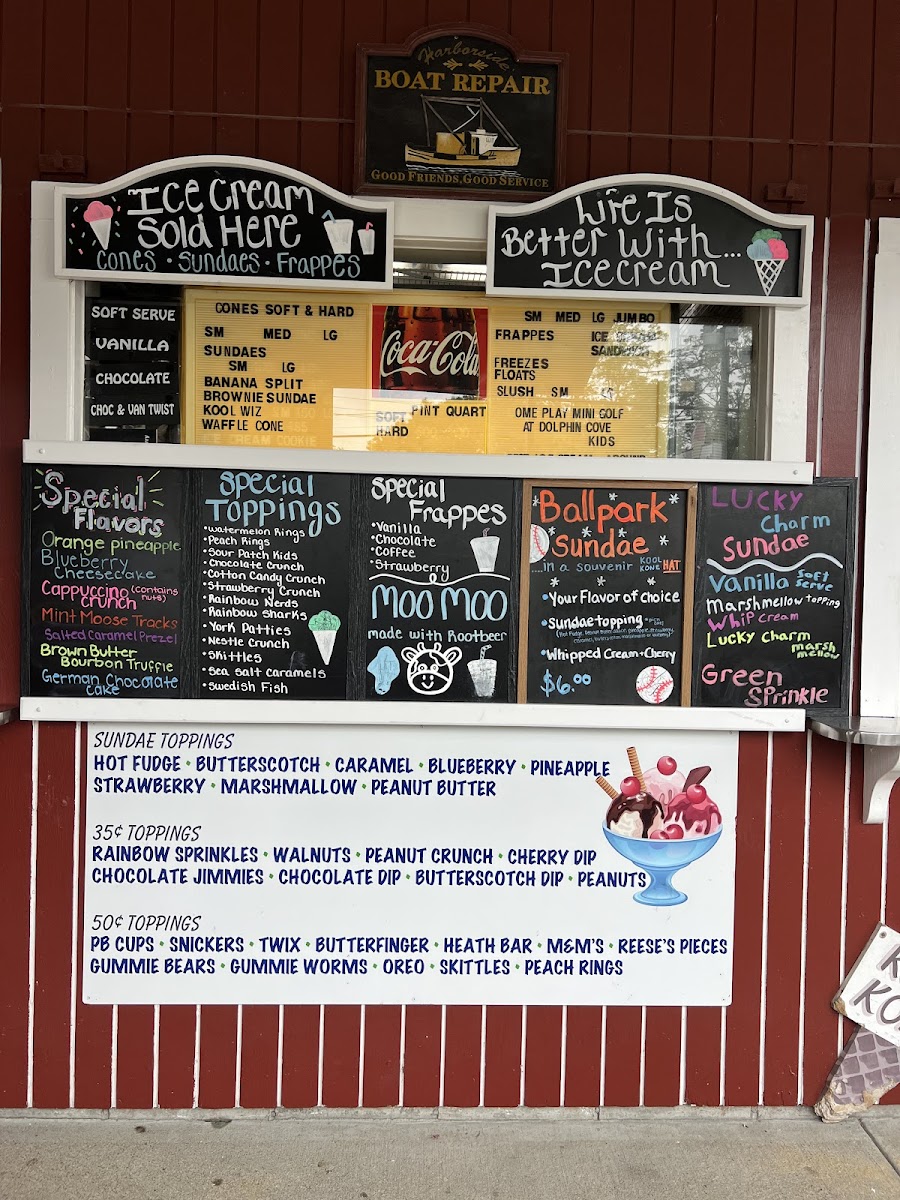 Harborside
BOAT REPAIR
GOOD FRIENDS, GOOD SERVICE
Ice Cream
Sold Here
Cones · Sundaes · Frappes
Life Is
Better With...
Icecream
SOFT SERVE
VANILLA
CHOCOLATE
CHOC & VAN TWIST
CONES SOFT & HARD
SM MED LG
SUNDAES
SM LG
BANANA SPLIT
BROWNIE SUNDAE
KOOL WIZ
WAFFLE CONE
ICE CREAM COOKIE
Coca-Cola
PINT QUART
SOFT
HARD
SM MED LG JUMBO
FRAPPES ICE CREAM
SANDWICH
FREEZES
FLOATS
SLUSH SM LG
OME PLAY MINI GOLF
AT DOLPHIN COVE
KIDS
Special
Flavors
Orange pineapple
Blueberry
Cheesecake
Cappuccino (contains
crunch nuts)
Mint Moose Tracks
Salted Caramel Prezel
Brown Butter
Bourbon Truffle
German Chocolate
cake
Special
Toppings
•Watermelon Rings
•Peach Rings
•Sour Patch Kids
•Chocolate Crunch
•Cotton Candy Crunch
•Strawberry Crunch
•Rainbow Nerds
•Rainbow Sharks
•York Patties
•Nestle Crunch
•Skittles
•Sea Salt caramels
•Swedish Fish
Special
Frappes
•Vanilla
•Chocolate
•Coffee
•Strawberry
MOO MOO
made with Rootbeer
Ballpark
Sundae
....in a souvenir KOOL KONE HAT
•Your Flavor of Choice
•Sundae topping
•Whipped Cream+Cherry
$6.00
LUCKY
Charm
Sundae
Vanilla Soft Serve
Marshmellow topping
Whip cream
Lucky charm
marsh
mellow
Green
Sprinkle
SUNDAE TOPPINGS
HOT FUDGE • BUTTERSCOTCH • CARAMEL • BLUEBERRY • PINEAPPLE
STRAWBERRY • MARSHMALLOW • PEANUT BUTTER
35¢ TOPPINGS
RAINBOW SPRINKLES • WALNUTS • PEANUT CRUNCH • CHERRY DIP
CHOCOLATE JIMMIES • CHOCOLATE DIP • BUTTERSCOTCH DIP • PEANUTS
50¢ TOPPINGS
PB CUPS • SNICKERS • TWIX • BUTTERFINGER • HEATH BAR • M&M'S • REESE'S PIECES
GUMMIE BEARS • GUMMIE WORMS • OREO • SKITTLES • PEACH RINGS
K
KO